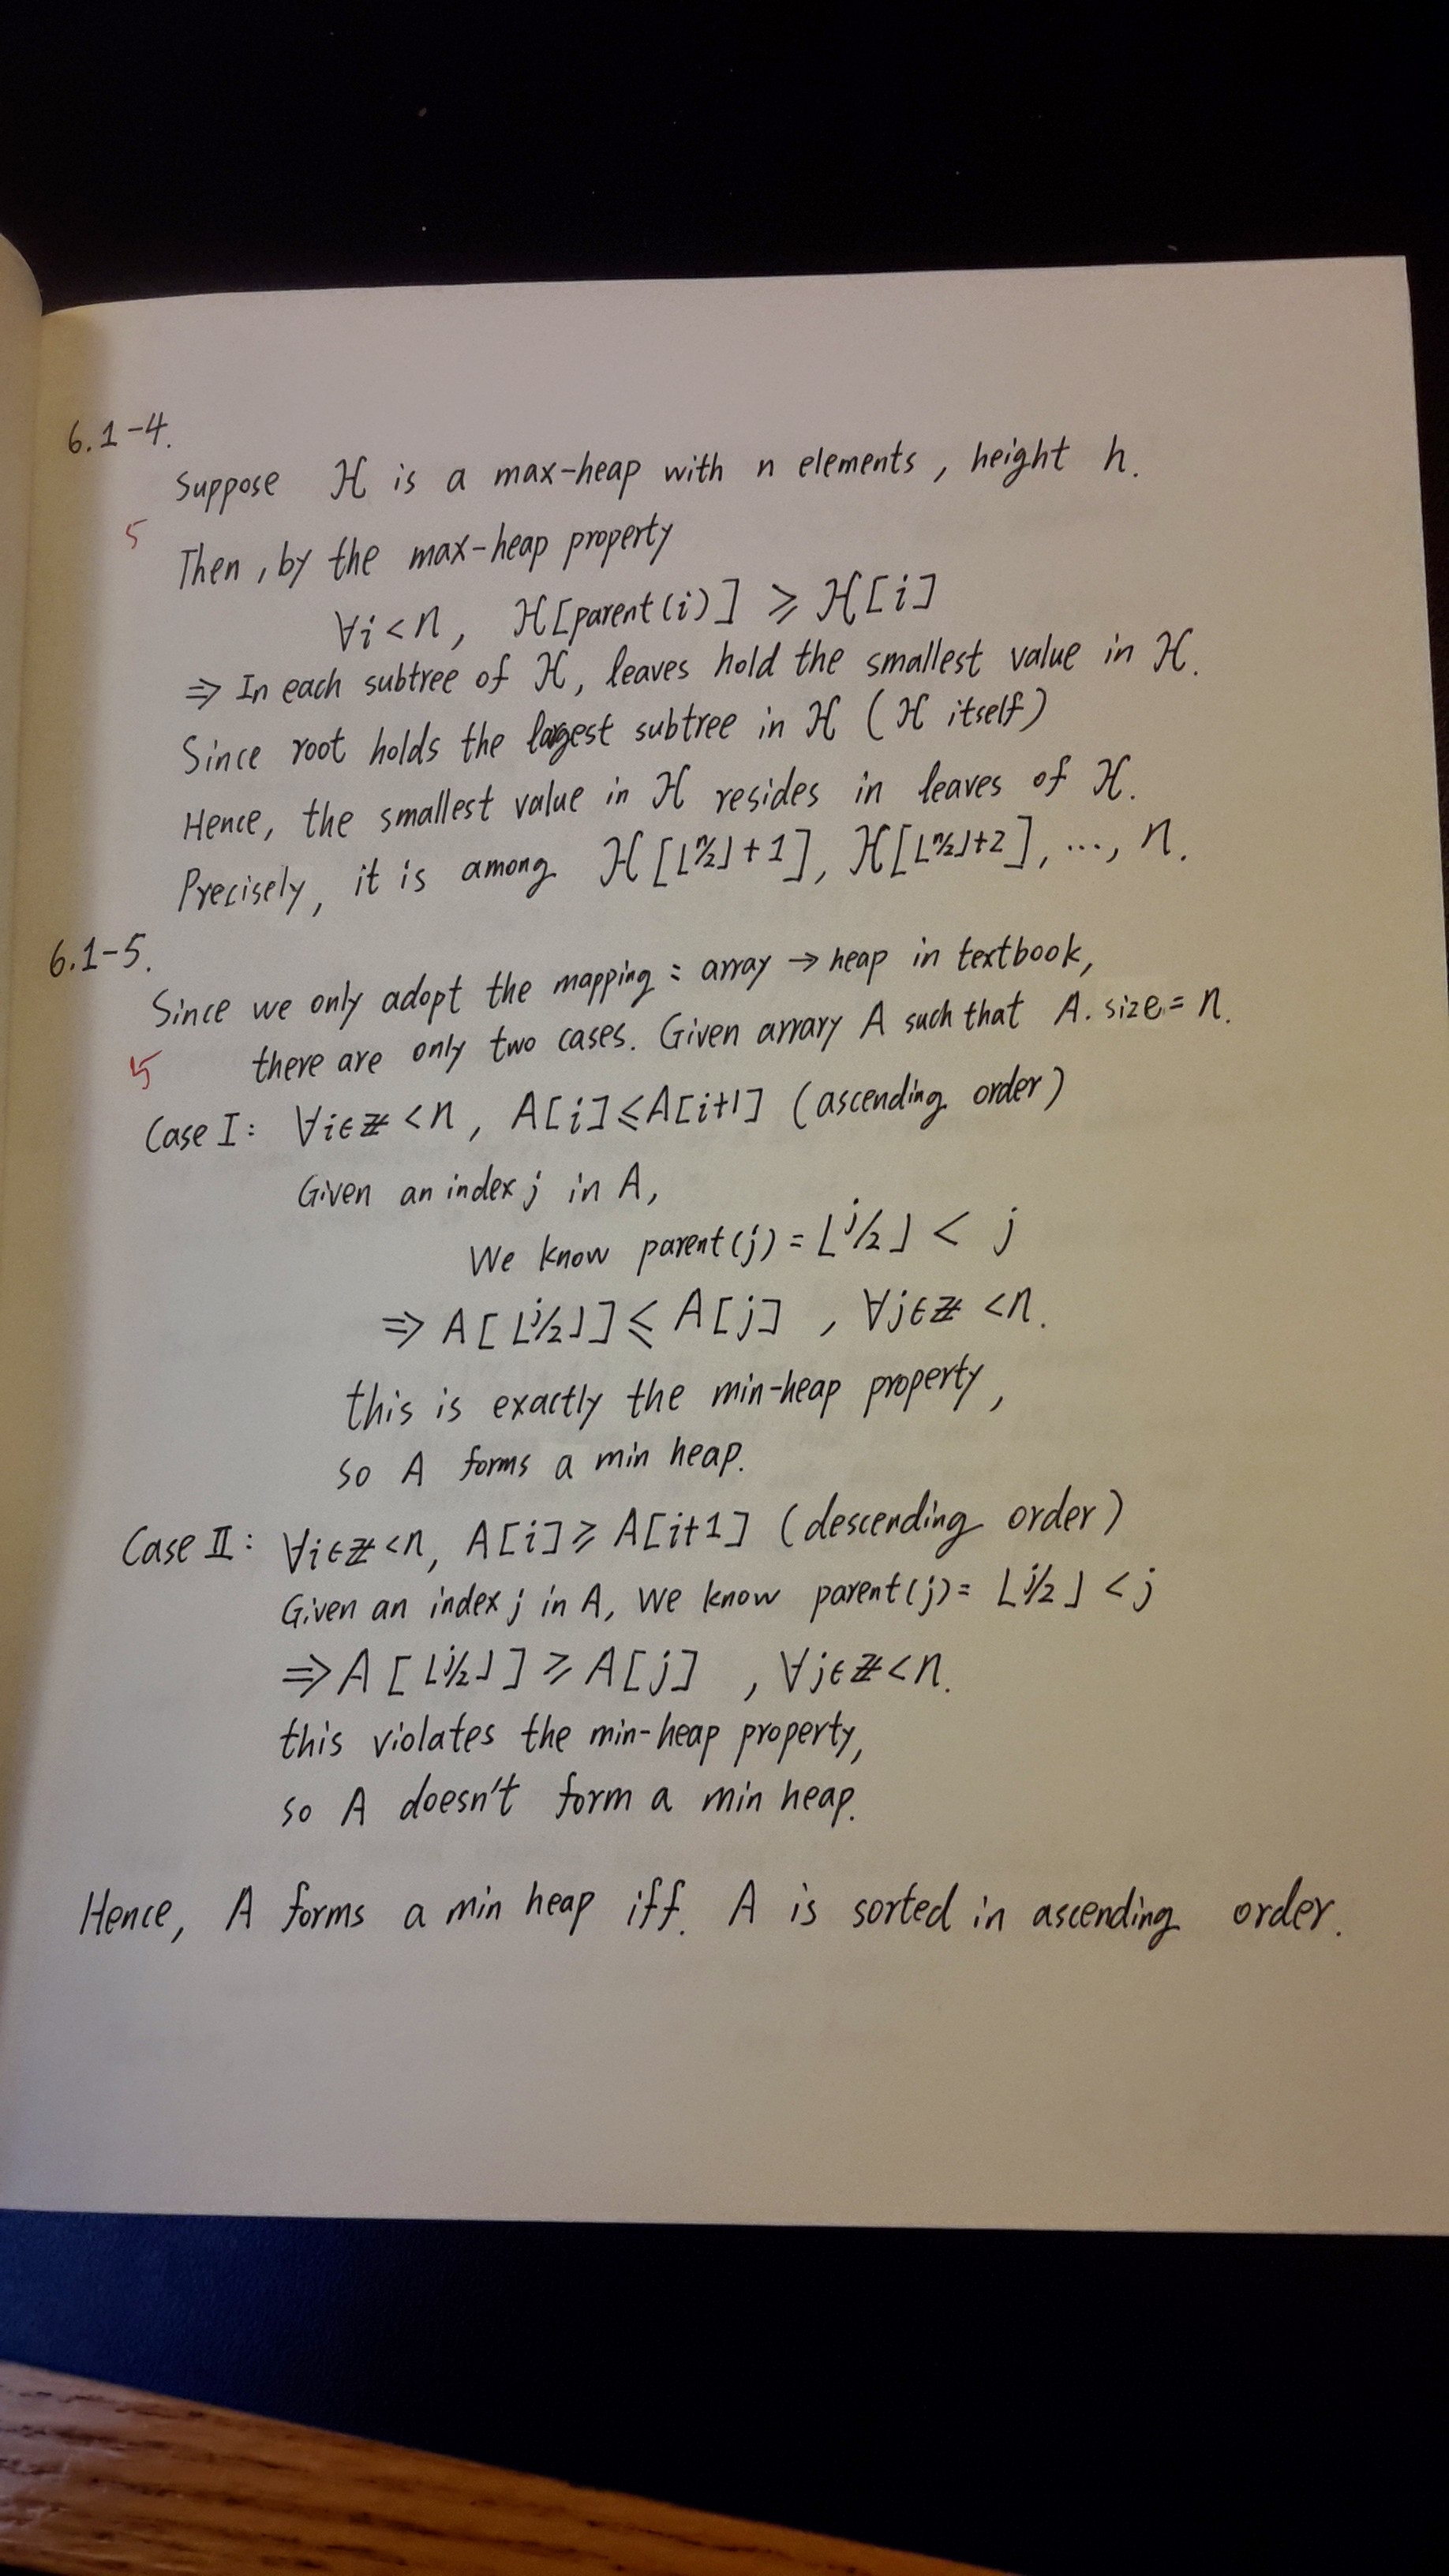 6.1-4.
Suppose ℋ is a max-heap with n elements, height h.
5
Then, by the max-heap property
∀i<n, ℋ[parent(i)] ≥ ℋ[i]
⇒ In each subtree of ℋ, leaves hold the smallest value in ℋ.
Since root holds the largest subtree in ℋ (ℋ itself)
Hence, the smallest value in ℋ resides in leaves of ℋ.
Precisely, it is among ℋ[⌊n/2⌋+1], ℋ[⌊n/2⌋+2], ..., n.
6.1-5.
Since we only adopt the mapping: array → heap in textbook,
5
there are only two cases. Given arrary A such that A.size = n.
Case I: ∀i∈ℤ <n, A[i]≤A[i+1] (ascending order)
Given an index j in A,
We know parent(j) = ⌊j/2⌋ < j
⇒ A[⌊j/2⌋] ≤ A[j] , ∀j∈ℤ <n.
this is exactly the min-heap property,
so A forms a min heap.
Case II: ∀i∈ℤ<n, A[i] ≥ A[i+1] (descending order)
Given an index j in A, We know parent(j) = ⌊j/2⌋ < j
⇒ A[⌊j/2⌋] ≥ A[j] , ∀j∈ℤ<n.
this violates the min-heap property,
so A doesn't form a min heap.
Hence, A forms a min heap iff. A is sorted in ascending order.